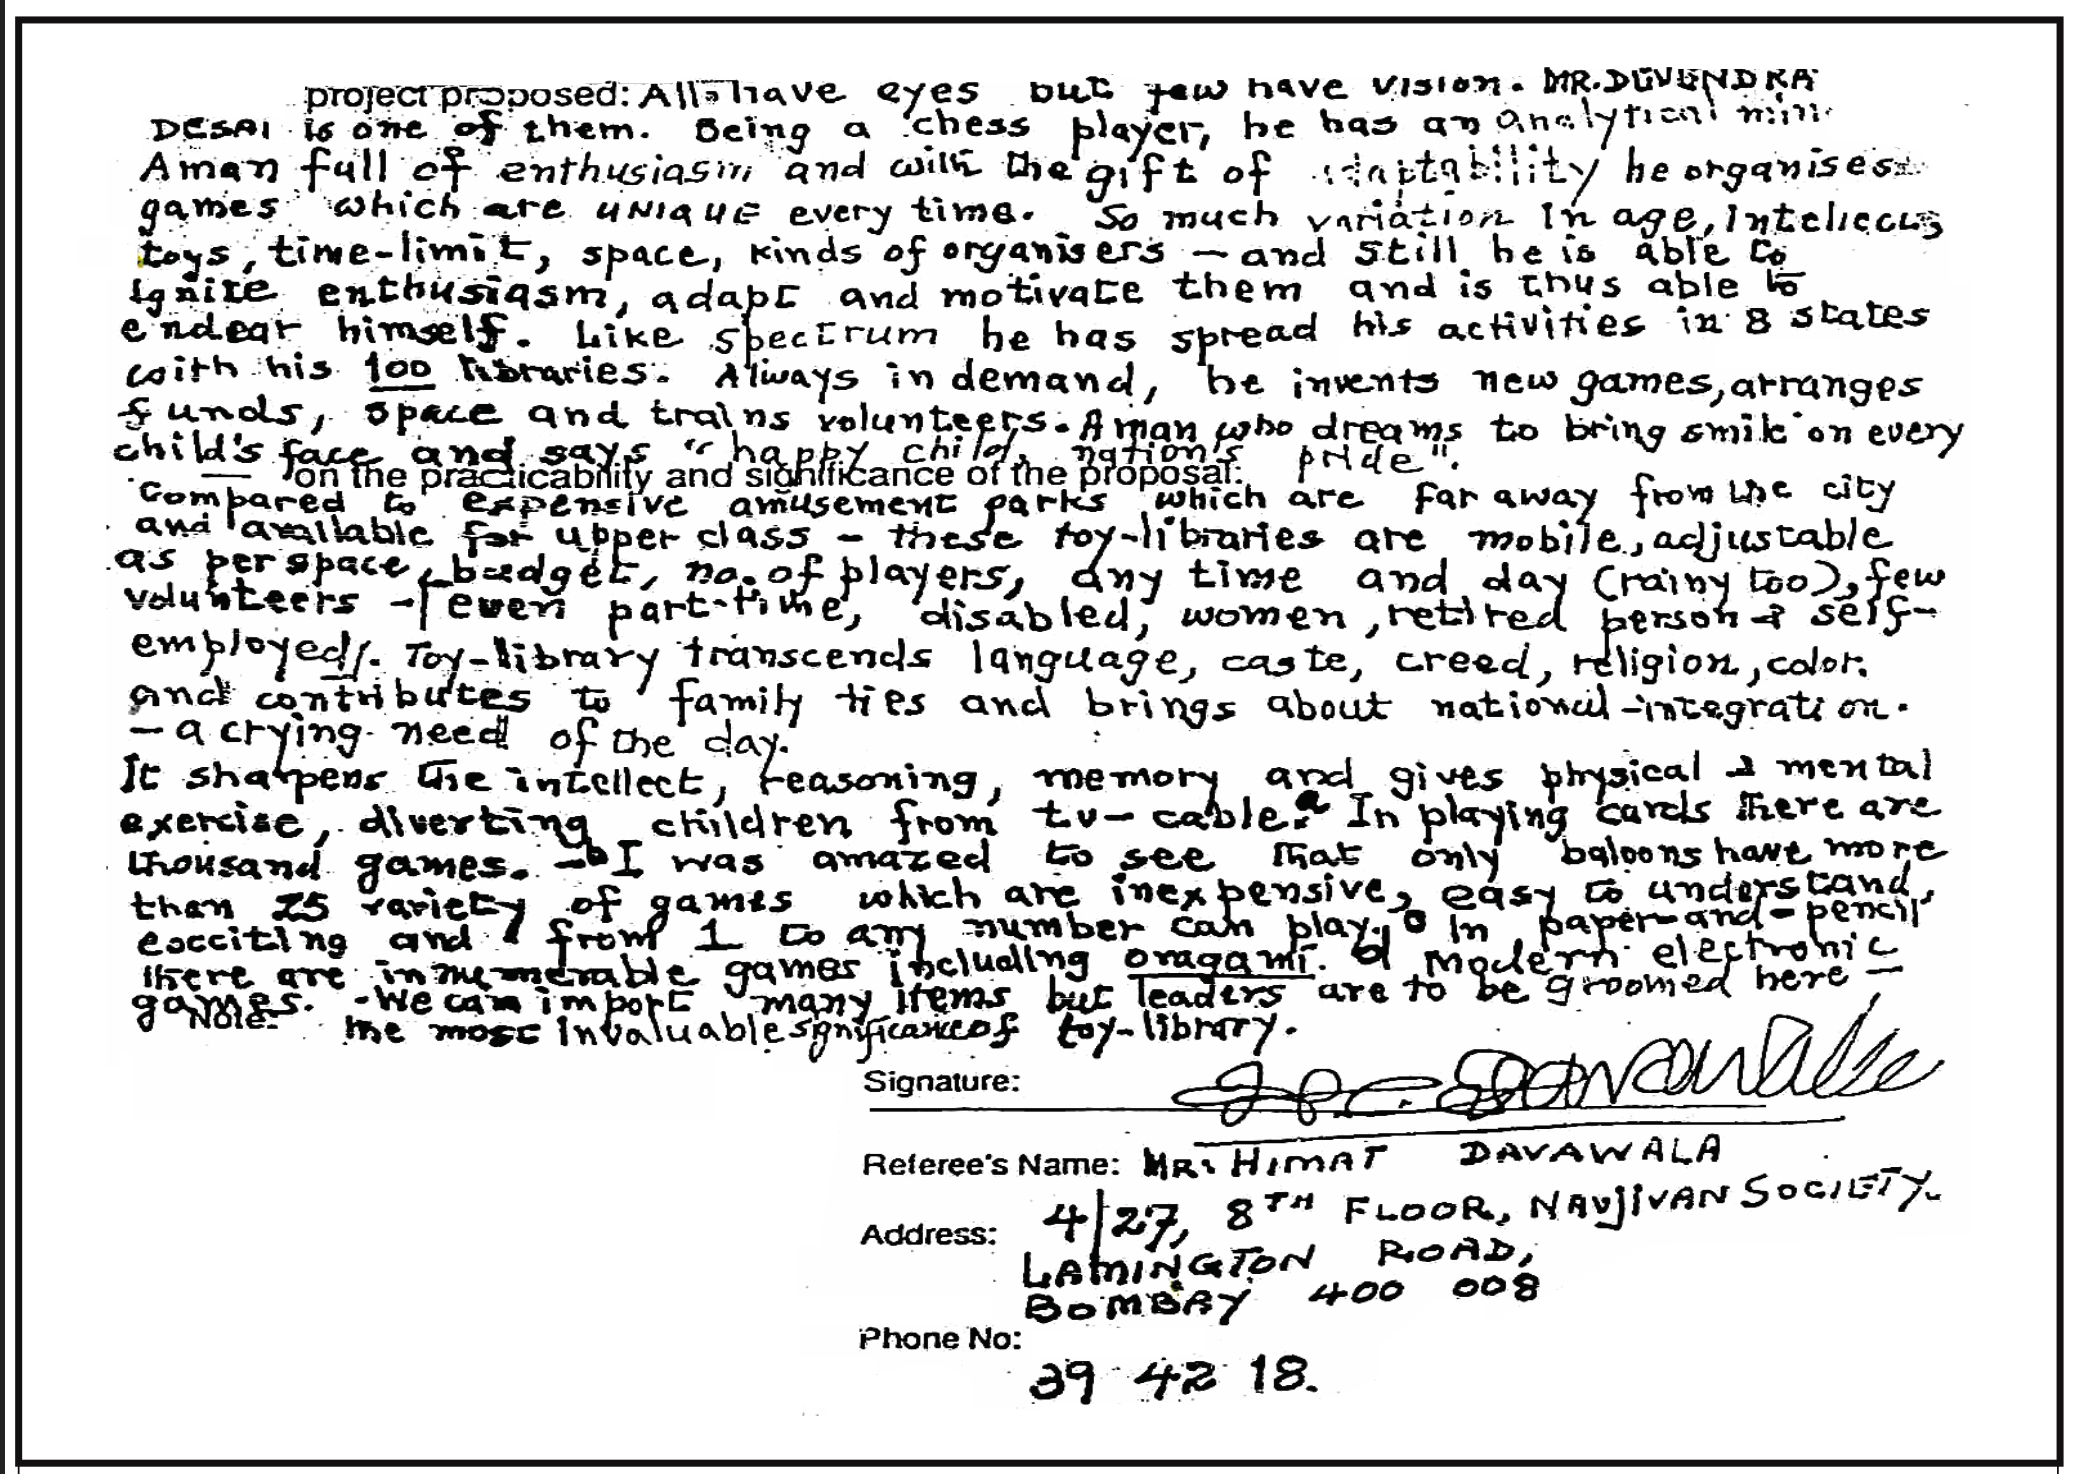 project proposed: All have eyes but few have vision. MR. DEVENDRA
DESAI is one of them. Being a chess player, he has an analytical
A man full of enthusiasm and with the gift of adaptability he organises
games which are UNIQUE every time. So much variation In age,
toys, time-limit, space, kinds of organisers — and still he is able to
ignite enthusiasm, adapt and motivate them and is thus able to
endear himself. Like spectrum he has spread his activities in 8 states
with his 100 libraries. Always in demand, he invents new games, arranges
funds, space and trains volunteers. A man who dreams to bring smile on every
child's face and says "happy child, nation's pride".
on the practicability and significance of the proposal:
Compared to expensive amusement parks which are far away from the city
and available for upper class - these toy-libraries are mobile, adjustable
as per space, budget, no. of players, any time and day (rainy too), few
volunteers - even part-time, disabled, women, retired person & self-
employed. Toy-library transcends language, caste, creed, religion, color.
and contributes to family ties and brings about national-integration.
— a crying need of the day.
It sharpens the intellect, reasoning, memory and gives physical & mental
exercise, diverting children from tv-cable. a In playing cards there are
thousand games. - b I was amazed to see that only baloons have more
than 25 variety of games which are inexpensive, easy to understand,
exciting and from 1 to any number can play. c In paper-and-pencil
there are innumerable games including oragami. d Modern electronic
games. - We can import many items but leaders are to be groomed here —
Note: the most invaluable significance of toy-library.
Signature:
Referee's Name: MR. HIMAT DAVAWALA
Address: 4/27, 8TH FLOOR, NAVJIVAN SOCIETY.
LAMINGTON ROAD,
BOMBAY 400 008
Phone No:
39 42 18.